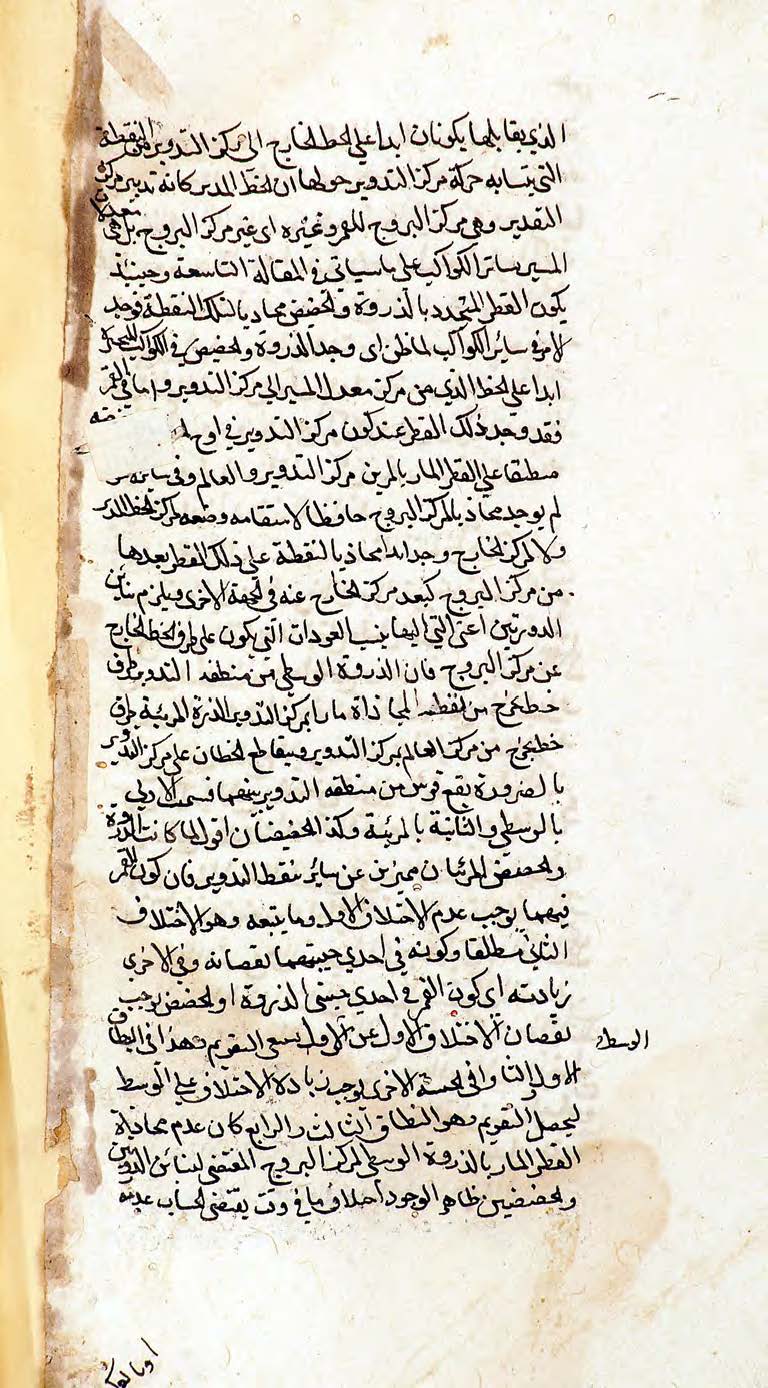 الذي يقابلها يكونان ابدا علي الخط الخارج الي مركز التدوير من النقطة
التي يتشابه حركة مركز التدوير حولها ان الخط المدير كانه تدبير مركز
التقدير وهي مركز البروج للقمر وغيره اي غير مركز البروج بل هي معدلات
المسير لساتر الكواكب علي ما سياتي في المقالة التاسعة وحينئذ
يكون القطر المتحدد بالذروة والحضيض محاذيا لتلك النقطة فوجد
الامر في سائر الكواكب لما ظن اي وجد الذروة والحضيض في الكواكب المتحيرة
ابدا علي الخط الذي من مركز معدل المسير الي مركز التدوير واما في القمر
فقد وجد ذلك القطر عند كون مركز التدوير في اوج
منطبقا علي القطر المار بالمرين مركز التدوير والعالم وفي
لم يوجد محاذيا لمركز البروج حافظا لاستقامه وضعه لمركز الخط المدير
ولا لمركز الخارج وجد ابدا محاذيا لنقطة علي ذلك القطر بعدها
من مركز البروج كبعد مركز الخارج عنه في الجهة الاخري ويلزم تباين
الدورتين اعني التي اليها ينسب العودات التي يكون علي طرف الخط الخارج
عن مركز البروج فان الذروة الوسطي من منطقه التدوير طرف
خط يخرج من نقطه المحاذاة مارا بمركز التدوير الذروة المرئية طرف
خط يخرج من مركز العالم بمركز التدوير ويتقاطع الخطان علي مركز التدوير
بالضرورة يقع قوس من منطقه التدوير بينهما فسميت الاولي
بالوسطي والثانية بالمرئية وكذا الحضيضان اقول لما كانت الذروة
والحضيض المرئيان مميزين عن سائر نقط التدوير فان كون القمر
فيهما يوجب عدم الاختلاف الاول وما يتبعه وهو الاختلاف
الثاني مطلقا وكونه في احدي جنبتيهما نقصانه وفي الاخري
زيادته اي كون القمر في احدي جنبتي الذروة او الحضيض يوجب
نقصان الاختلاف الاول عن الاول يسمي التقويم وهذا في النطاق
الوسط
الاول والثاني وفي الجنبة الاخري يوجب زيادة الاختلاف علي الوسط
ليحصل التقويم وهو النطاق الثالث والرابع كان عدم محاذاة
القطر المار بالذروة الوسطي لمركز البروج المقتضي لتباين الذروتين
والحضيضين ظاهر الوجود اختلاف ما في وقت يقتضي الحساب عدمه